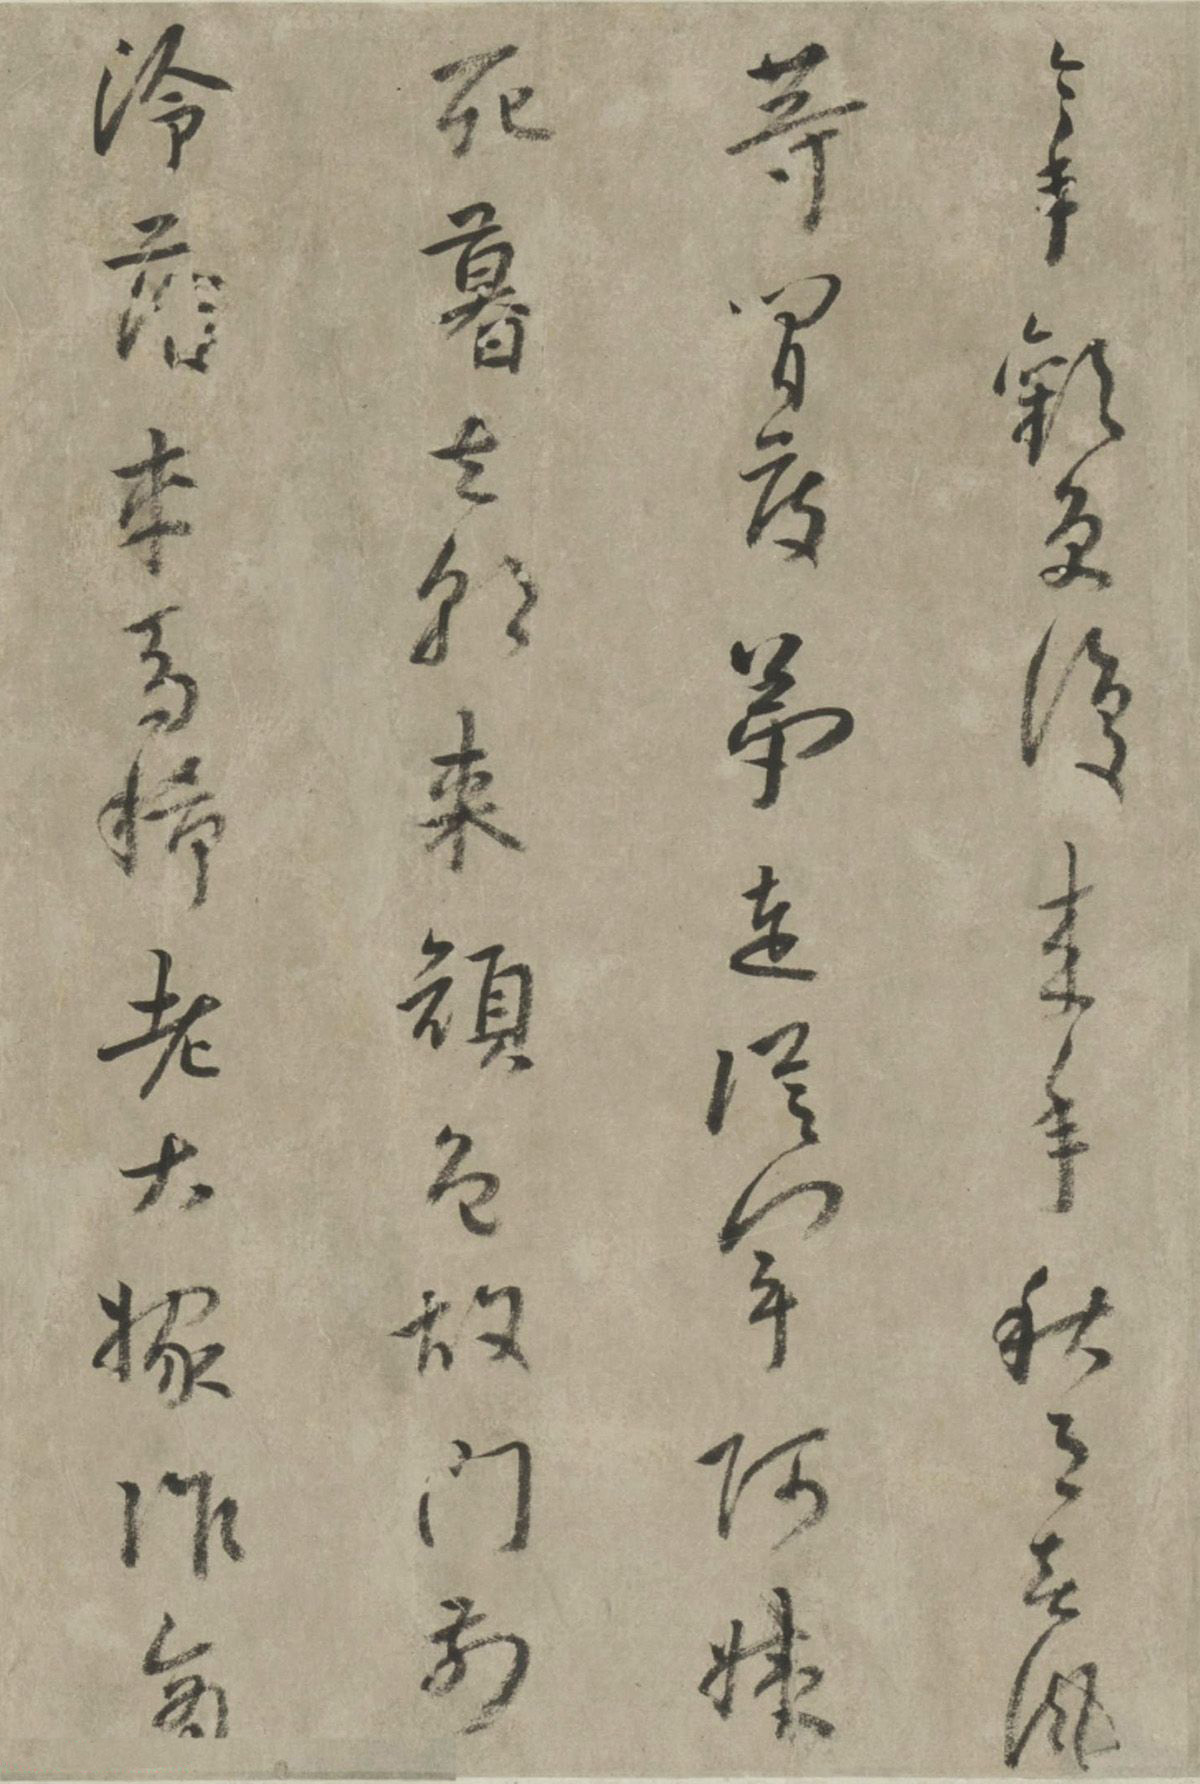 今年歡笑復來年秋月春風
等閒度弟走從軍阿姨
死暮去朝來顏色故門前
冷落車馬稀老大嫁作商